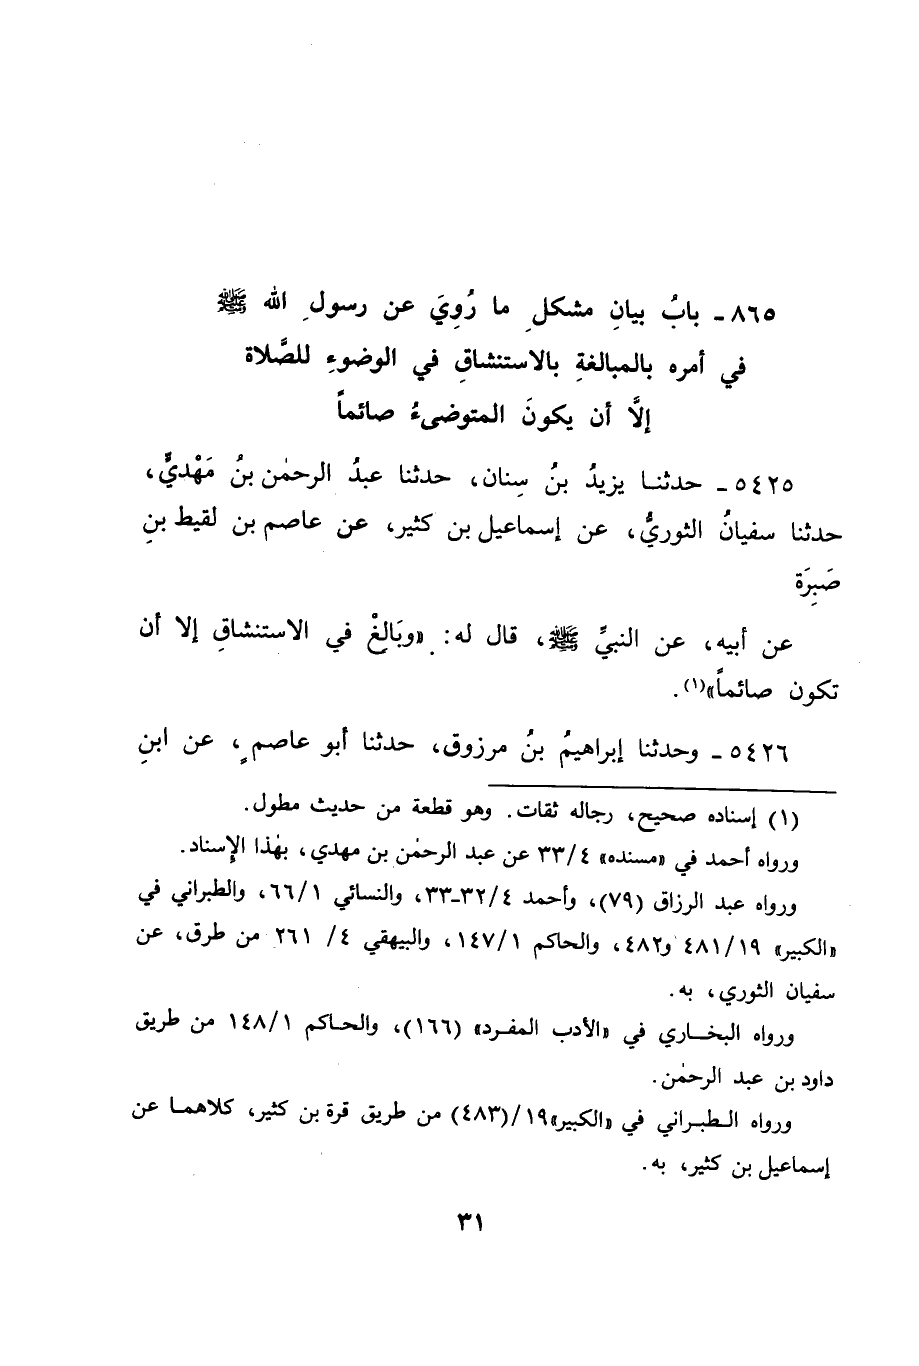 ٨٦٥ـ بابُ بيانِ مشكلِ ما رُوِيَ عن رسولِ الله ﷺ
في أمره بالمبالغةِ بالاستنشاقِ في الوضوءِ للصَّلاة
إلَّا أن يكونَ المتوضىءُ صائماً
٥٤٢٥ـ حدثنا يزيدُ بنُ سِنان، حدثنا عبدُ الرحمٰن بنُ مَهْديٍّ،
حدثنا سفيانُ الثوريُّ، عن إسماعيل بن كثير، عن عاصم بن لقيط بنِ
صَبِرَة
عن أبيه، عن النبيِّ ﷺ، قال له: «وبَالِغْ في الاستنشاقِ إلا أن
تكون صائماً»(١).
٥٤٢٦ـ وحدثنا إبراهيمُ بنُ مرزوق، حدثنا أبو عاصمٍ، عن ابنِ
(١) إسناده صحيح، رجاله ثقات. وهو قطعة من حديث مطول.
ورواه أحمد في «مسنده» ٣٣/٤ عن عبد الرحمٰن بن مهدي، بهٰذا الإسناد.
ورواه عبد الرزاق (٧٩)، وأحمد ٣٢/٤ـ٣٣، والنسائي ٦٦/١، والطبراني في
«الكبير» ٤٨١/١٩ و٤٨٢، والحاكم ١٤٧/١، والبيهقي ٤/ ٢٦١ من طرق، عن
سفيان الثوري، به.
ورواه البخاري في «الأدب المفرد» (١٦٦)، والحاكم ١٤٨/١ من طريق
داود بن عبد الرحمٰن.
ورواه الطبراني في «الكبير»١٩/(٤٨٣) من طريق قرة بن كثير، كلاهما عن
إسماعيل بن كثير، به.
٣١